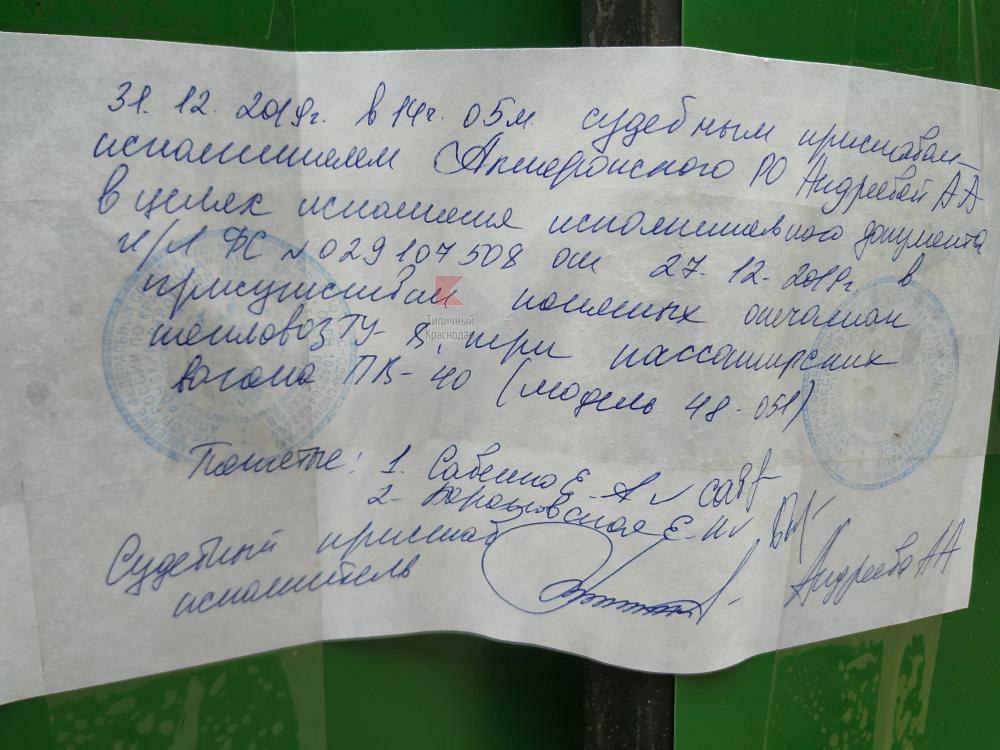 31. 12. 2019г. в 14ч. 05м судебным приставом-
исполнителем Апшеронского РО Андреевой АА
в целях исполнения исполнительного документа
и/л ФС №029107508 от 27.12.2019г. в
присутствии понятых опечатан
тепловоз ТУ-8, три пассажирских
вагона ПВ-40 (модель 48-051)
Типичный
Краснодар
Понятые: 1. Савенко Е.А
2. Е.
Судебный пристав
исполнитель Андреева АА